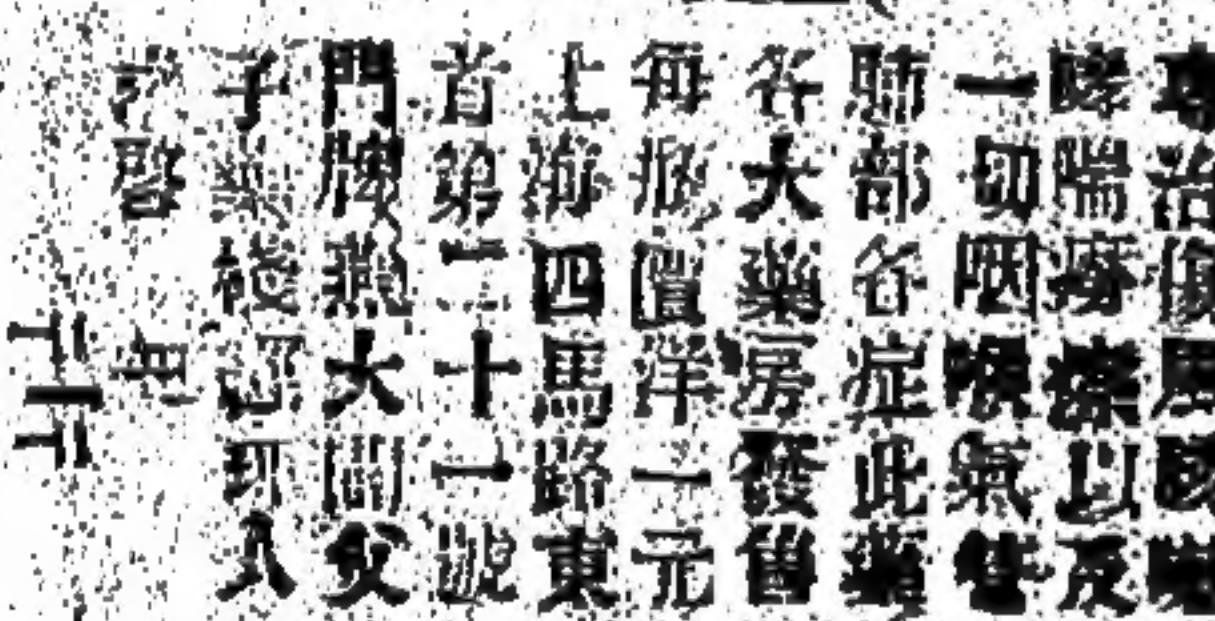 專治傷風咳嗽
哮喘癆瘵以及
一切咽喉氣管
肺部各症此藥
各大藥房發售
每瓶實洋一元
上海四馬路東
首第二十一號
門牌 大闢父
子 總經理人
啓